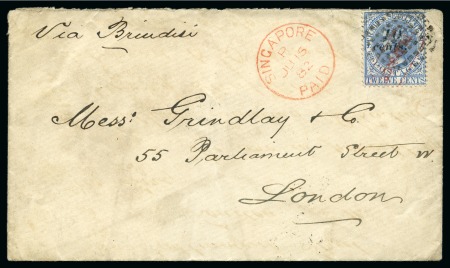 Via Brindisi
SINGAPORE
82
PAID
10
cents
TWELVE CENTS
Mess: Grindlay & Co.
55 Parliament Street W
London